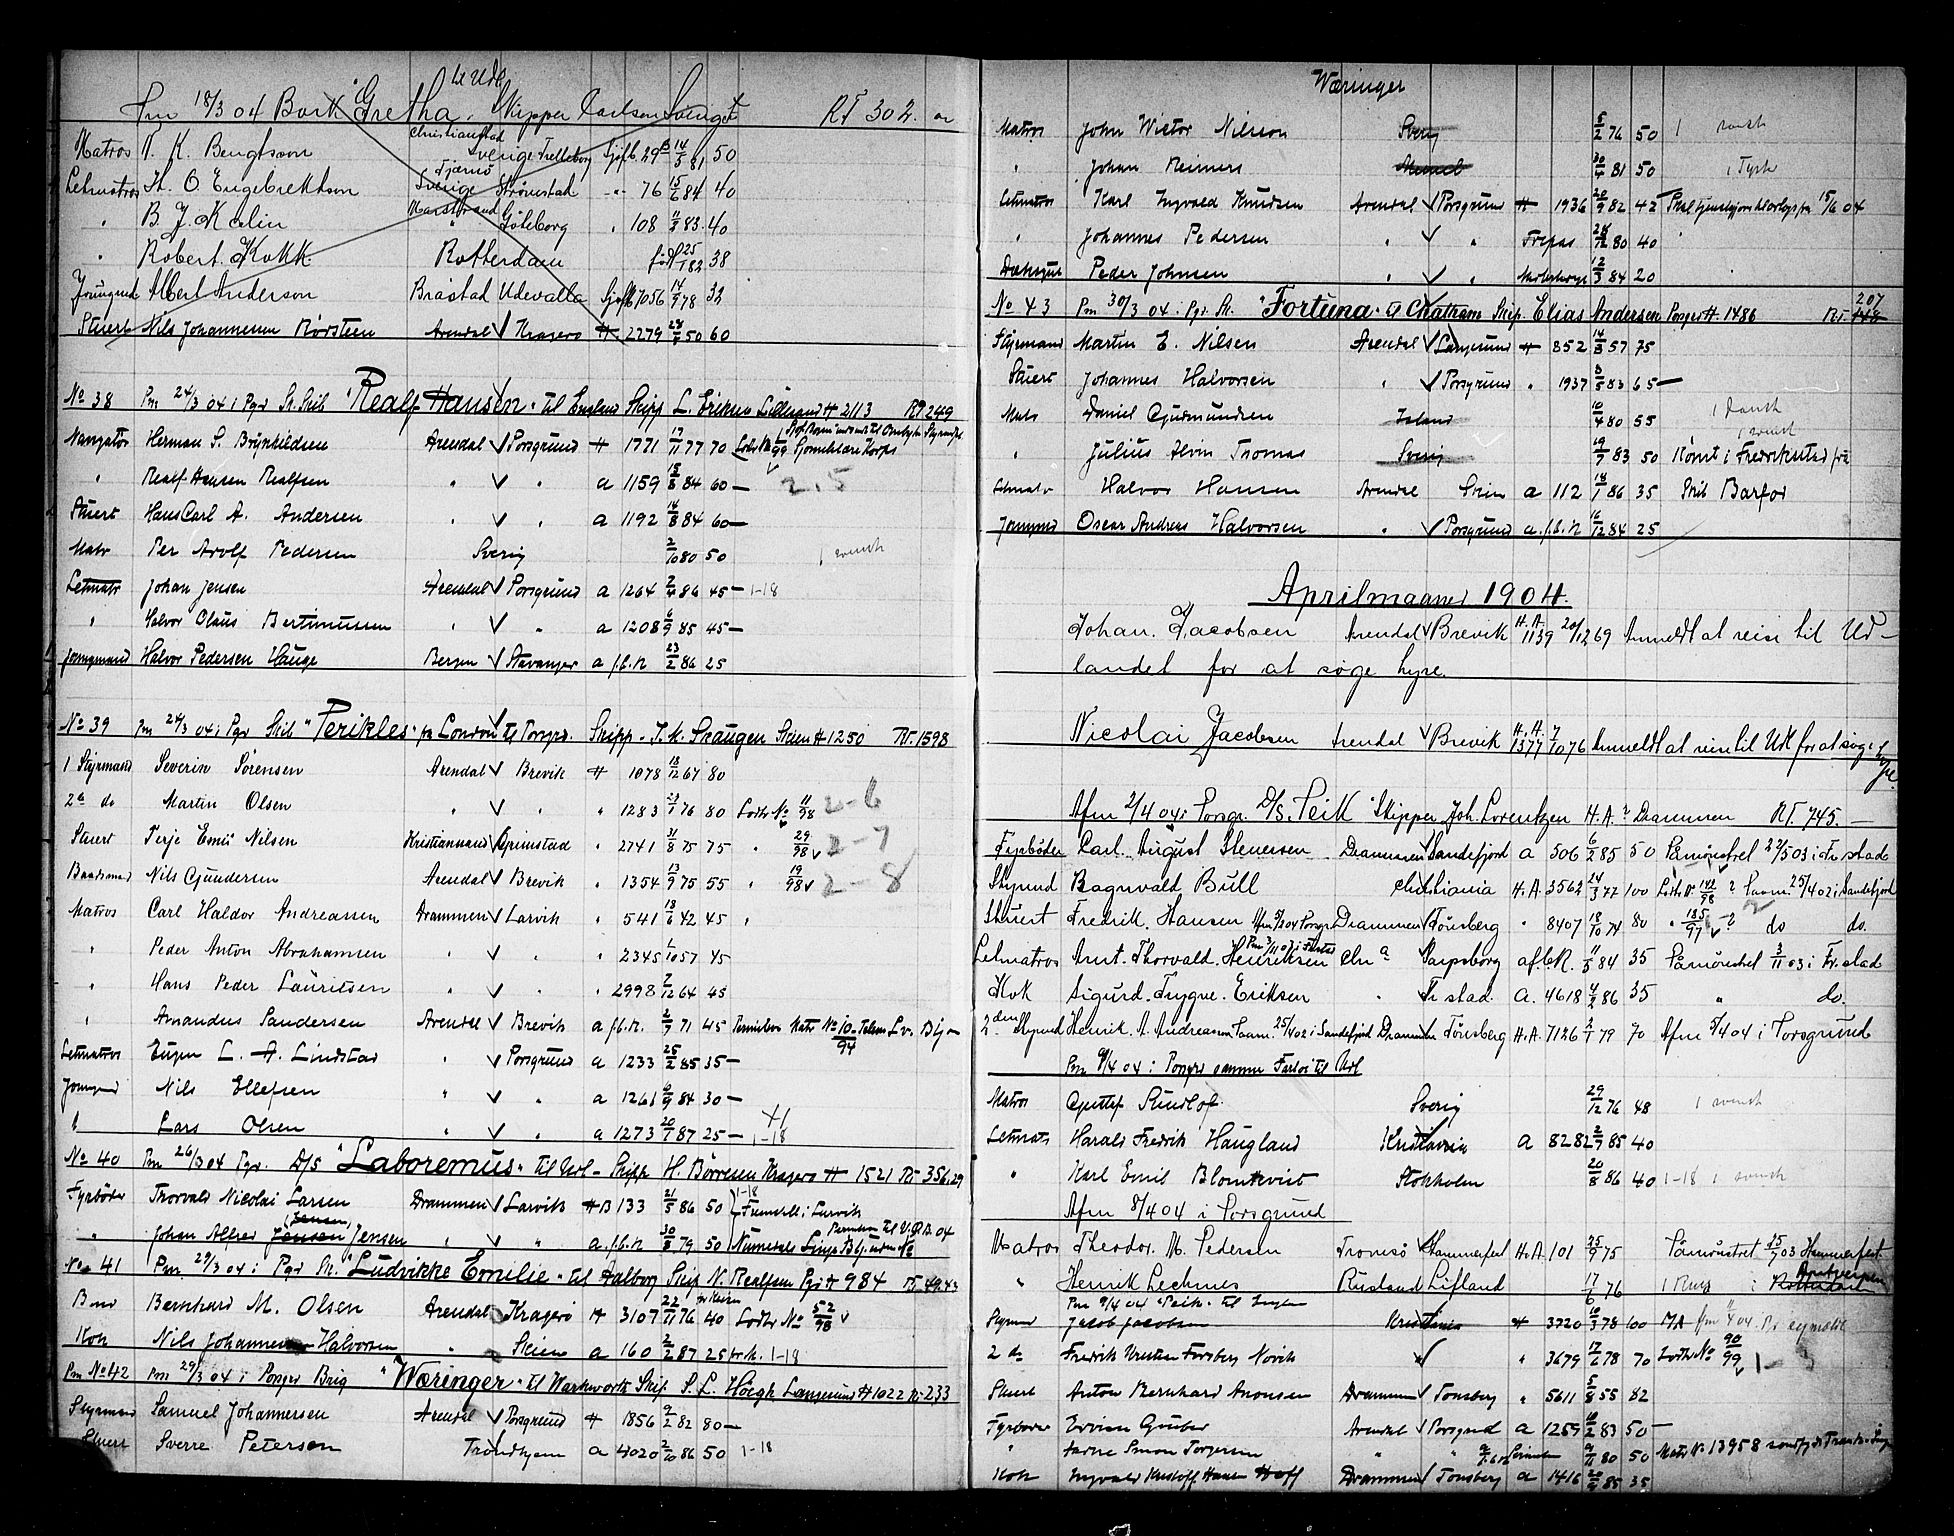 til Udl.
Pm 18/3 04 Bark "Gretha" Skipper Carlsen RT 302
Matros N. K. Bengtsson Christianstad Sverige Trelleborg Sjöfb. 29 14/5 81 50
Letmatros H. O. Engebrektson Tjernö Sverige Strömstad " 76 15/6 84 40
" B. J. Kalin Marstrand Göteborg " 108 11/8 83 40
" Robert Kokk Rotterdam född 25/1 82 38
Joungmd Albert Anderson Brastad Udevalla 7056 14/9 78 32
Stuert Nils Johannesen Rørsteen Arendal Kragerø H 2279 50 60
No 38 Pm 24/3 04 i Pgr Sk. Skib "Realf Hansen" til England Skipp L. Eriksen Lillesand H 2113 RT 249
Herman S. Brynhildsen Arendal Porsgrund H 1771 17/11 77 70
" Realf Hansen Realfsen " " a 1159 15/8 84 60 — 2.5
Stuert Hans Carl A. Andersen " " a 1192 14/8 84 60 —
Matr Per Adolf Pedersen Sverig 2/10 80 50 1 svensk
Letmatr Johan Jensen Arendal Porsgrund a 1264 2/4 86 45 — 1-18
" Halvor Olaus Bertinussen " " a 1208 6/9 85 45 —
Joungmand Halvor Pedersen Hauge Bergen Stavanger a f.b.N 23/2 86 25
No 39 Pm 24/3 04 i Pgr Skib "Perikles" fra London til Porsgr. Skipp. J. M. Skien H 1250 RT 1598
1 Styrmand Severin Sørensen Arendal Brevik H 1078 18/12 67 80
2d do Martin Olsen " " " 1283 23/1 76 80 Lodts No 11/98 2-6
Stuert Terje Emil Nilsen Kristiansand Grimstad " 2741 31/8 75 75 " 29/98 2-7
Baadsmd Nils Gundersen Arendal Brevik " 1354 13/9 75 55 " 19/98 2-8
Matros Carl Haldor Andreassen Drammen Larvik " 541 18/6 42 45 "
" Peder Anton Abrahamsen " " " 2345 1/10 57 45
" Hans Peder Lauritsen " " " 2998 7/12 64 45
" Amandus Sandersen Arendal Brevik a f.b.N. 2/9 71 45
Letmatros Eugen L. A. Lindstad " Porsgrund a 1233 25/2 85 35 —
Joungmd Nils Ellefsen " " a 1261 6/9 84 30 —
" Lars Olsen " " a 1273 20/7 87 25 — 1-18
No 40 Pm 26/3 04 Pgr. D/S "Laboremus" til Udl — Skipp H. Børresen Kragerø H 1521 RT 356,29
Fyrbøder Thorvald Nicolai Larsen Drammen Larvik HB 133 21/5 86 50 1-18
" Johan Alfred Jensen " " a f.b.N 30/8 79 50
No 41 Pm 29/3 04 i Pgr Sk. "Ludvikke Emilie" til Aalborg Skip N. Realfsen Pgr H 984 RT 49,43
Bernhard M. Olsen Arendal Kragerø H 3107 22/11 76 40 Lodts No 52/98
Kok Nils Johannes Halvorsen " Skien a 160 2/2 87 25 pr. M. 1-18
Pm No 42 Pm 29/3 04 i Porsgr Brig "Wæringer" til Warkworth Skip. S. L. Høegh Langesund H 1022 RT 233
Styrmand Samuel Johannersen Arendal Porsgrund H 1856 9/2 82 80 —
Stuert Sverre Petersen Trondhjem a 4020 2/10 86 50 1-18
Wæringer
Matros John Victor Nilsson Sverig 5/2 76 50 1 svensk
" Johan Reimers 30/4 81 50 1 Tysk
Letmatros Karl Ingvald Knudsen Arendal Porsgrund H 1936 20/9 82 42
" Johannes Pedersen " " 80 40
Dæksgut Peder Johnsen " " 12/3 84 20
No 43 Pm 30/3 04 i Pgr Sk. "Fortuna" til Chatham Skip. Elias Andersen Porsgr H 1486 RT 207
Styrmand Martin E. Nilsen Arendal Langesund H 852 14/3 57 75
Stuert Johannes Halvorsen " Porsgrund " 1937 3/5 83 65 —
Matr Daniel Gudmundsen Island 10/4 80 55 1 dansk
" Julius Alvin Thomas Sverig 19/7 83 50 1 svensk Rømt i Fredrikstad fra
Letmatr Halvor Hansen Arendal Skien a 112 18/1 86 35 Skib Barfod
Joungmd Oscar Andreas Halvorsen " Porsgrund a. f.b.N 16/12 84 25
Aprilmaaned 1904.
Johan Jacobsen Arendal Brevik H.A. 1139 20/12 69 Anmeldt at reise til Ud-
landet for at søge hyre.
Nicolai Jacobsen Arendal Brevik H.A. 1377 7/10 76 Anmeldt at reise til Udl for at søge hyre
Afm 2/4 04 i Porsgr. D/S. "Peik" Skipper Joh. Lorentzen H.A. ? Drammen RT. 745. —
Fyrbøder Carl August Stenersen Drammen Sandefjord a 506 6/2 85 50 Paamønstret 22/5 03 i Fr.stad
Styrmd Ragnvald Bull Christiania H.A. 3562 24/3 77 100 Lods No 142/98 ? Paam. 25/4 02 i Sandefjord
Stuert Fredrik Hansen Drammen Tønsberg " 8407 18/10 74 80 " 185/97 ? do do.
Letmatros Ant. Thorvald Henriksen Chr a Sarpsborg a f.b.N. 11/5 84 35 Paamønstret 3/11 03 i Fr.stad
Kok Sigurd Trygve Eriksen " Fr.stad. a. 4618 4/2 86 35 " do.
2den Styrmd Henrik A. Andreassen Paam. 25/4 02 i Sandefjord Drammen Tønsberg H.A. 7126 2/1 79 70 Afm 5/4 04 i Porsgrund
Pm 9/4 04 i Porsgr samme Fartøi til Udl
Matros Gustaf Sundlöf Sverig 29/12 76 48 1 svensk
Letmatr Harald Fredrik Haugland Kristiania a 8282 2/7 85 40
" Karl Emil Blomkvist Stokholm 20/8 86 40 1-18 1 svensk
Afm 8/4 04 i Porsgrund
Matros Theodor M. Pedersen Tromsø Hammerfest H.A. 101 25/9 75 Paamønstret 25/7 03 Hammerfest
" Henrik Lechmes Rusland Lifland 17/6 76 1 Russ i Antwerpen
Pm 9/4 04 "Peik" til England
Styrmd Jacob Jacobsen Kristiania H 3720 10/3 78 100
2 do Fredrik Forsberg Norvik " " 3679 17/6 78 70 Lodts No 90/99
Stuert Anton Bernhard Aronsen Drammen Tønsberg " 5611 5/8 55 82
Fyrbøder Edvin Gruber Arendal Porsgrund a 1259 10/2 83 50 —
" Simon Torgersen " " 9/11 80 50 Matr No 13958
Kok Ingvald Kristoff Hansen Hoff Drammen Tønsberg a 1416 20/9 85 35